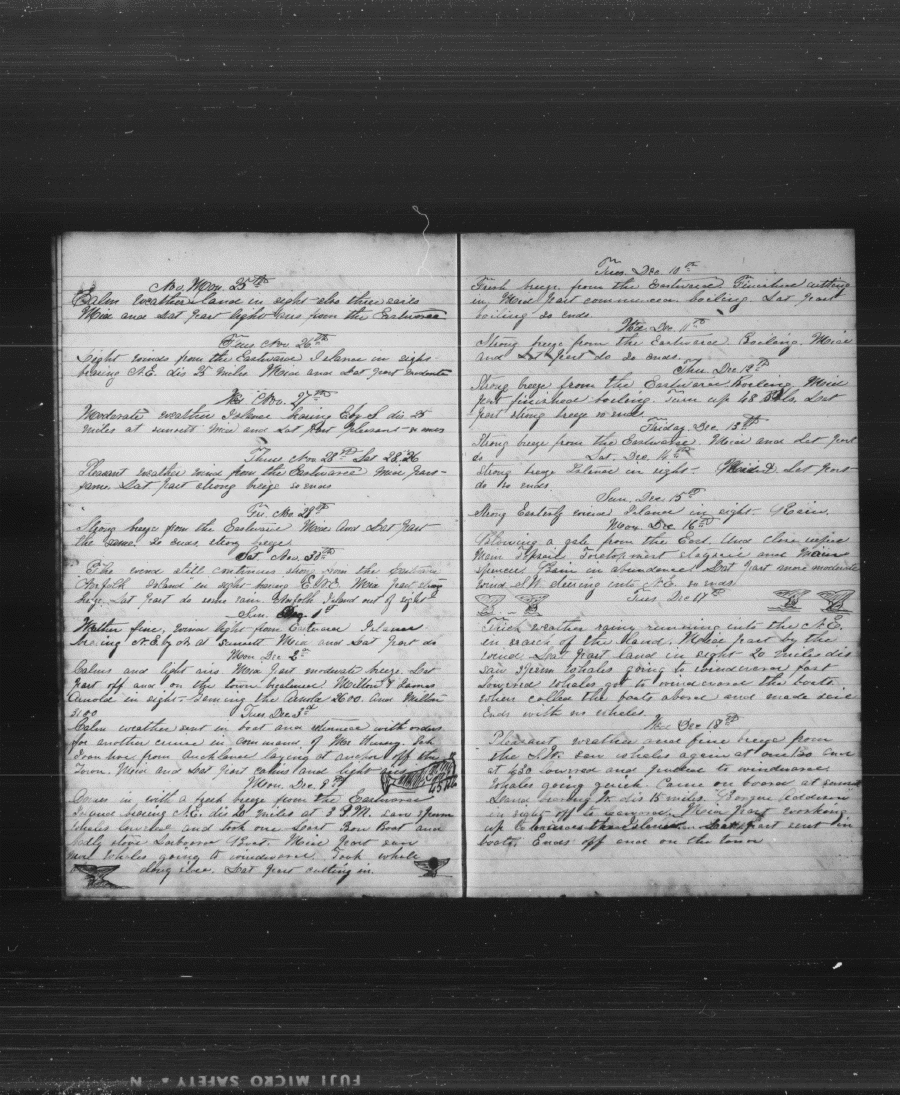 Nov Mon 25th
Calm weather land in sight also three sails
Mid and Lat part light airs from the Eastward
Tues Nov. 26th
Light winds from the Eastward Island in sight
bearing N.E. dis 25 miles Mid and Lat part
Wed Nov. 27th
Moderate weather Island bearing E by S dis 25
miles at sunset Mid and Lat Part pleasant so ends
Thurs Nov 28th Lat 28.26
Pleasant weather wind from the Eastward Mid part
same Lat part strong breeze so ends
Fri. Nov. 28th
Strong breeze from the Eastward Mid And Lat part
the same. so ends strong breeze
Sat Nov. 30th
The wind still continues strong from the
Norfolk Island in sight bearing E.N.E. Mid part strong
breeze Lat part do some rain Norfolk Island out of sight
Sun. 1st
Weather fine. wind light from Eastward Island
bearing N.E. by at sunset Mid and Lat part do
Mon Dec 2nd
Calms and light airs Mid part moderate breeze Lat
part off and on the town Milton & James
Arnold in sight. the Arnold 2600 And Milton
Tues Dec 3rd
Calm weather sent in boat and with orders
for another cruise in command of Mr
from Auckland laying at anchor off the
Town. Mid and Lat part calms and light airs
Mon. Dec. 9th
45
Comes in with a fresh breeze from the Eastward
Island bearing N.E. dis 20 miles at 3 P.M. saw Sperm
Whales lowered and took one Boat and
badly stove Larboard Boat. Mid part saw
more Whales going to windward. Took whale
along side. Lat part cutting in.
Tues. Dec. 10th
Fresh breeze from the Eastward Finished cutting
in, Mid part commenced boiling. Lat part
boiling so ends.
Wed. Dec. 11th
Strong breeze from the Eastward Boiling. Mid
and Lat part do so ends.
Thu Dec 12th
Strong breeze from the Eastward Boiling. Mid
part finished boiling. Turn up 48 Bbls. Lat
part strong breeze so ends
Friday. Dec. 13th
Strong breeze from the Eastward. Mid and Lat part
do Sat. Dec. 14th
strong breeze Island in sight. Mid & Lat part
do so ends
Sun. Dec. 15th
Strong Easterly wind Island in sight. Rain.
Mon. Dec 16th
Blowing a gale from the East. And close reefed
Main Topsail Foretopmast staysail and Main
Spencer Rain in abundance. Lat part more moderate
wind S.W. steering into N.E. so ends
Tues. Dec 17th
Thick weather rainy running into the N.E.
in search of the land. Middle part by the
wind. Lat part land in sight 20 miles dis
saw Sperm Whales going to windward fast
lowered Whales got to windward the boats
when called the boats aboard and made sail
Ends with no whales.
Wed Dec 18th
Pleasant weather and fine breeze from
the S.W. saw whales again at
at 4.30 lowered and to windward
Whales going quick. Came on board at sunset
Island bearing W. dis 15 miles. Addison
in sight off to leeward. Mid Part working
up to Lat Part sent in
boats, Ends off and on the town